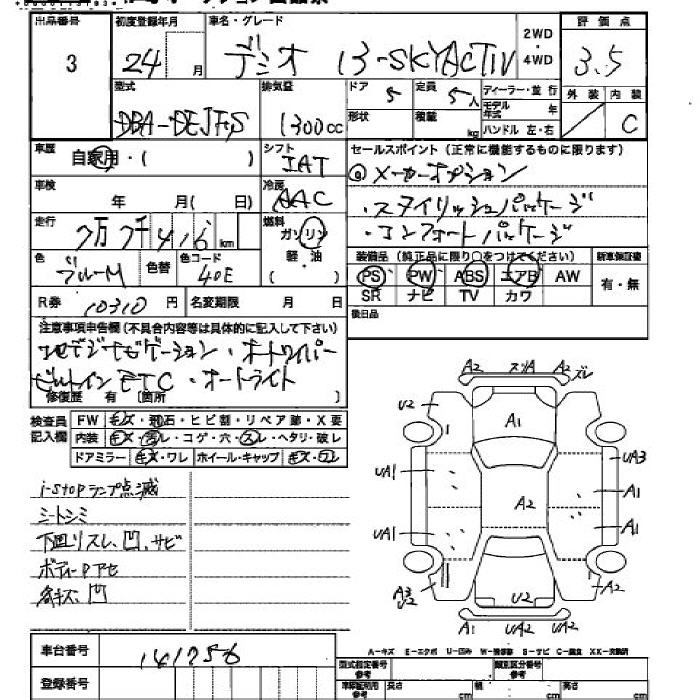 出品番号 初度登録年月 車名・グレード 2WD・4WD 評価点
3 24 月 デミオ 13-SKYACTIV 3.5
型式 排気量 ドア 5 定員 5人 ディーラー・並行 外装 内装
DBA-DEJFS 1300cc 形状 積載 kg モデル年式 年 ハンドル 左・右 C
車歴 自家用・( ) シフト IAT セールスポイント(正常に機能するものに限ります)
車検 年 月( 日) 冷房 AAC ◎メーカーオプション
走行 7万7千416km 燃料 ガソリン 軽・油 ( ) ・スタイリッシュパッケージ
・コンフォートパッケージ
色 ブルーM 色替 色コード 40E 装備品(純正品に限り○をつけてください) 新車保証書
PS PW ABS エアB AW 有・無
R券 10310円 名変期限 月 日 SR ナビ TV カワ
後日品
注意事項申告欄(不具合内容等は具体的に記入して下さい)
地デジナビゲーション・オートワイパー
ビルトインETC・オートライト
修復歴 有 〔箇所 〕
検査員記入欄 FW キズ・飛石・ヒビ割・リペア跡・X要
内装 キズ・汚レ・コゲ・穴・スレ・ヘタリ・破レ
ドアミラー キズ・ワレ ホイール・キャップ キズ・ワレ
i-stopランプ点滅
シートシミ
下回リスレ、凹、サビ
ボディーPアセ
各キズ、凹
A2 スリA A2 ズレ
U2 1 A1
UA1 UA3
A2 A1
UA1 A1
A3 U2 U2 A2
A1 UA2 UA2
A-キズ E-エクボ U-凹み W-補修跡 S-サビ C-腐食 XX-交換済
車台番号 141756
登録番号
型式指定番号 参考 類別区分番号 参考
車検証記載 参考 長さ cm 幅 cm 高さ cm